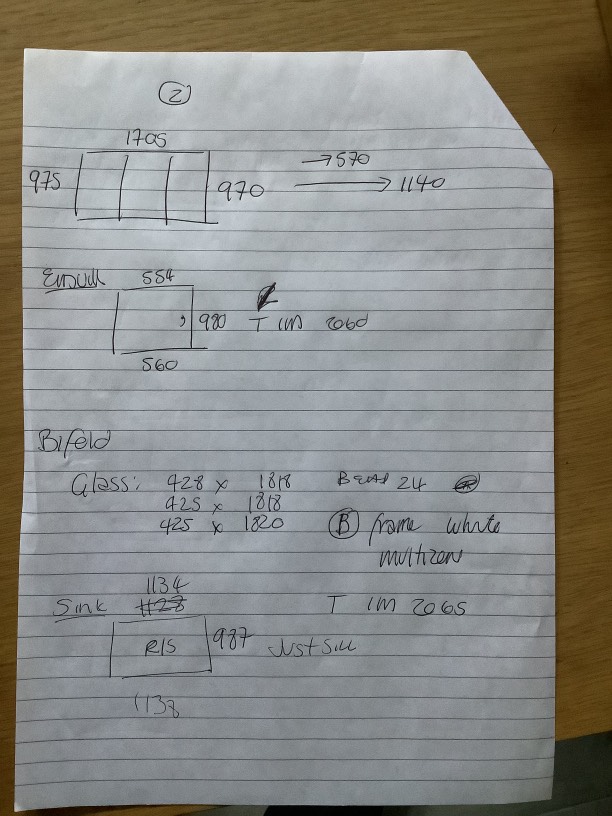 2
1705
975 970 → 570
→ 1140
Ensuit 554
980 T IM 2060
560
Bifold
Glass: 428 x 1818 Bead 24
425 x 1818
425 x 1820 B frame white
multizone
1134
Sink 1128 T IM 2065
R/S 987 Just Sill
1138